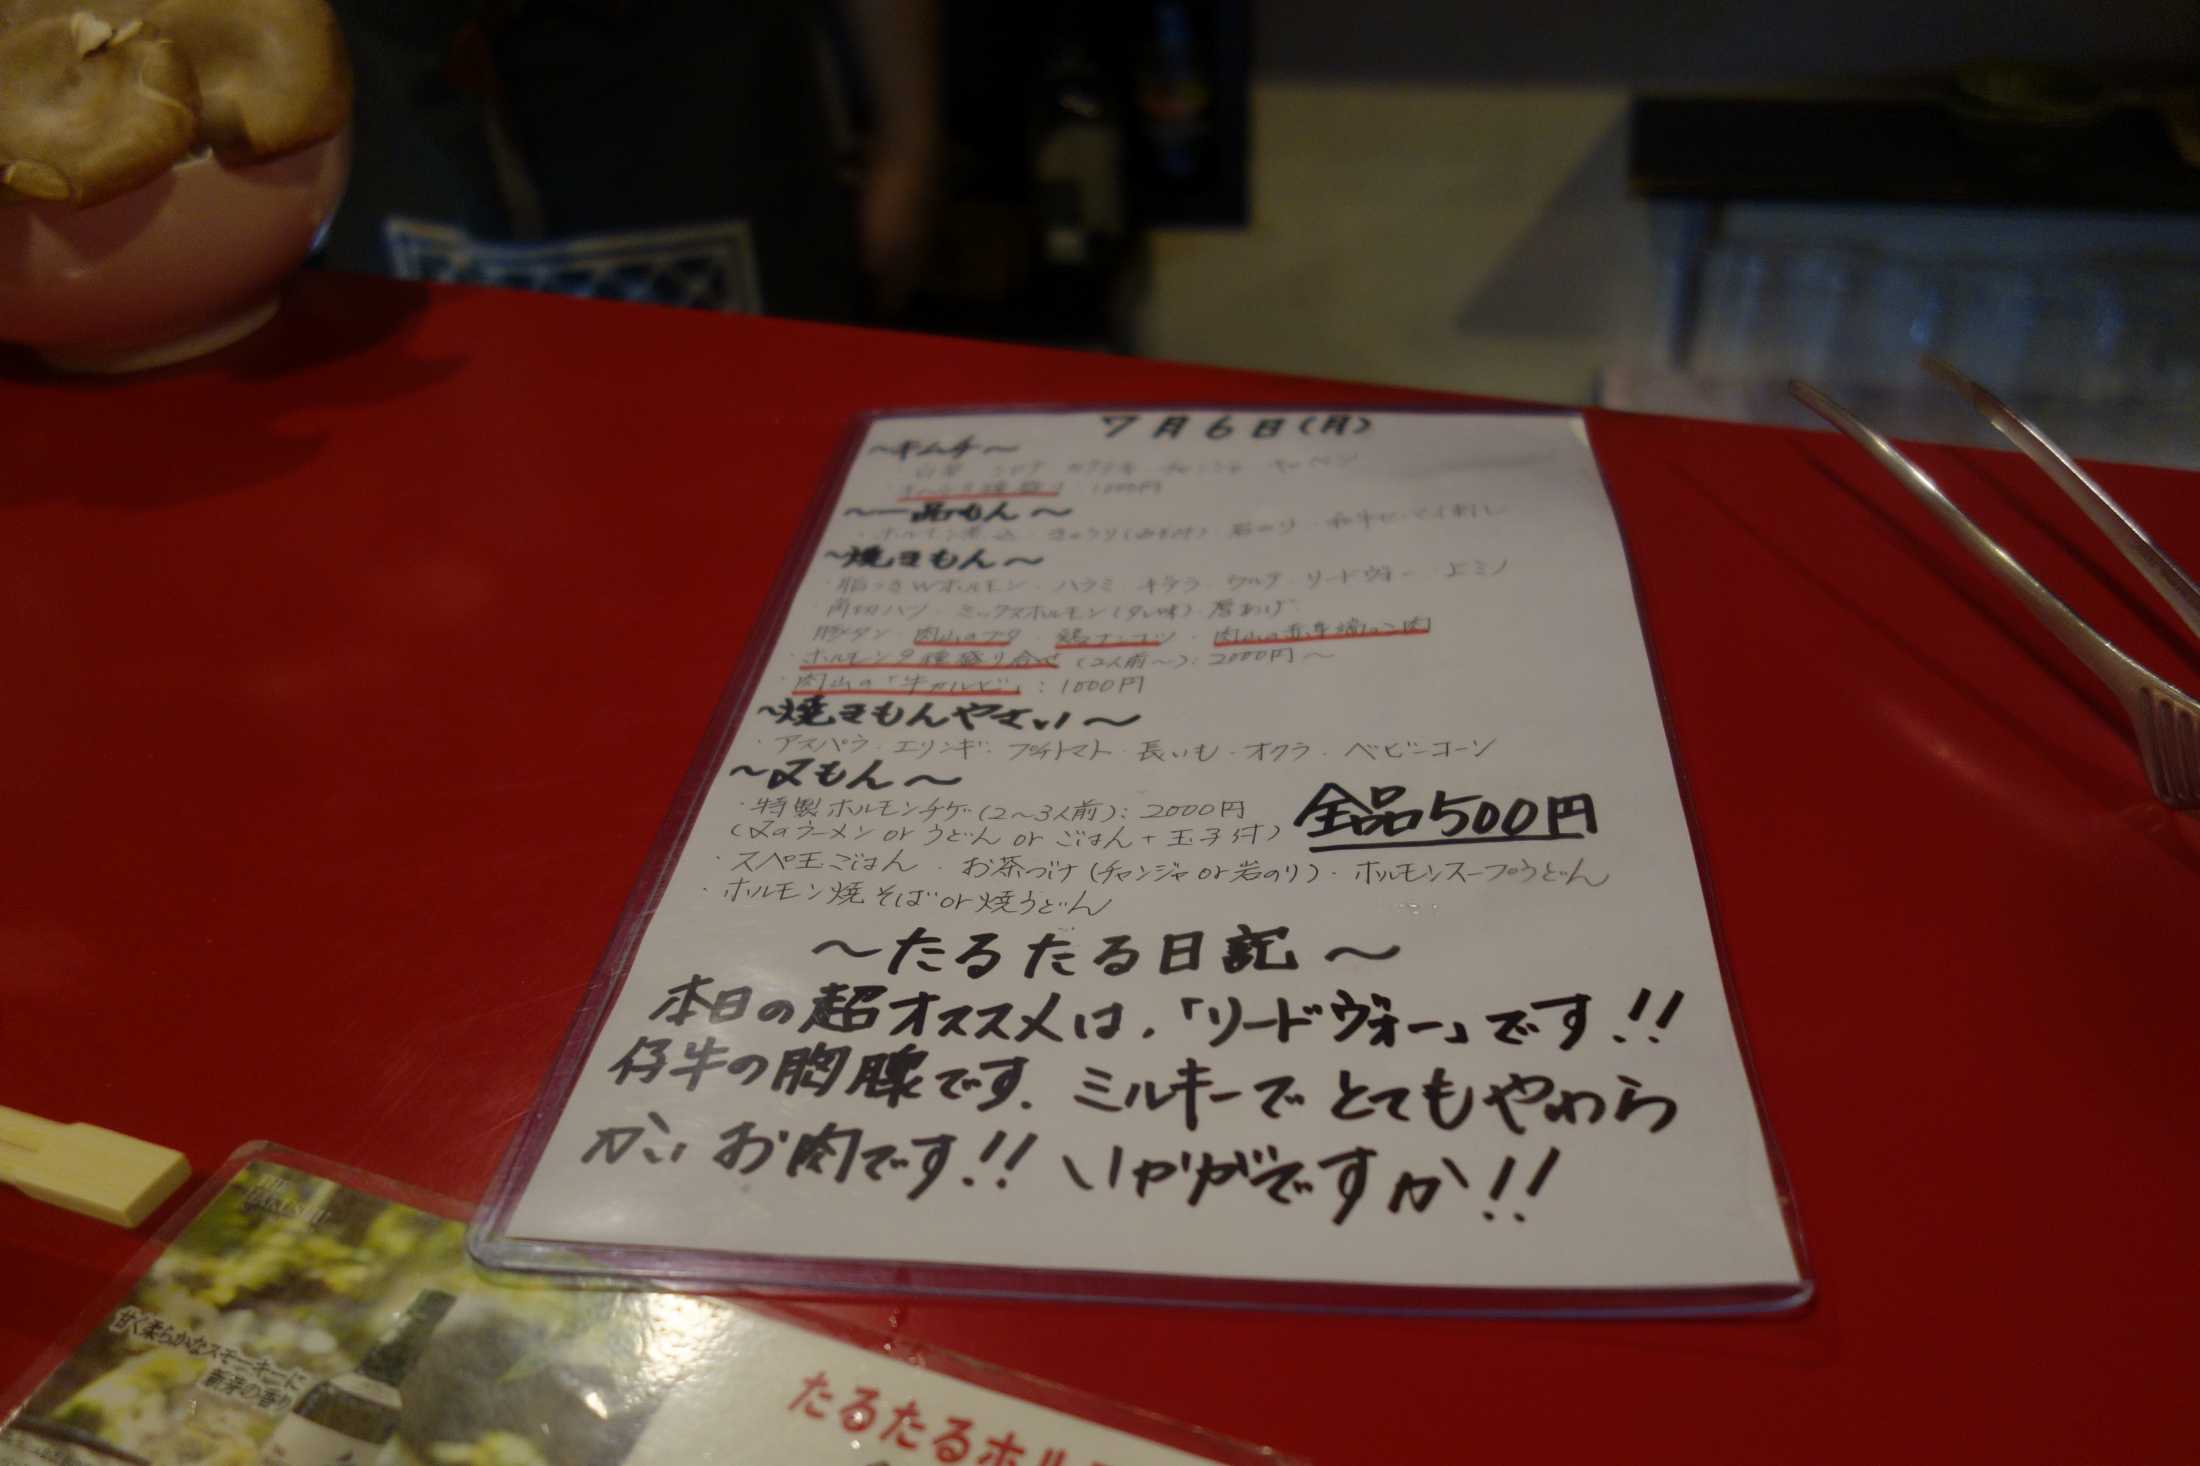 7月6日(月)
～キムチ～
白菜
1000円
～一品もん～
・ホルモン煮込 ・きゅうり 岩のり
～焼きもん～
・脂つきWホルモン・ハラミ・ギアラ・ウルテ・リードヴォー・上ミノ
・角切ハツ・ミックスホルモン(タレ味)・唐あげ
・豚タン・肉山のブタ・鶏ナンコツ・肉山の
・ホルモン9種盛り合せ(2人前～):2000円～
・肉山の「牛カルビ」:1000円
～焼きもんやさい～
・アスパラ・エリンギ・プチトマト・長いも・オクラ・ベビーコーン
～〆もん～
・特製ホルモンチゲ(2～3人前):2000円
(〆のラーメン or うどん or ごはん+玉子付)
全品500円
・スペ玉ごはん・お茶づけ(チャンジャor岩のり)・ホルモンスープうどん
・ホルモン焼そばor焼うどん
～たるたる日記～
本日の超オススメは、「リードヴォー」です!!
仔牛の胸腺です。ミルキーでとてもやわら
かいお肉です!! いかがですか!!
THE
HAKUSHU
甘く柔らかなスモーキーに
新芽の香り
たるたるホル